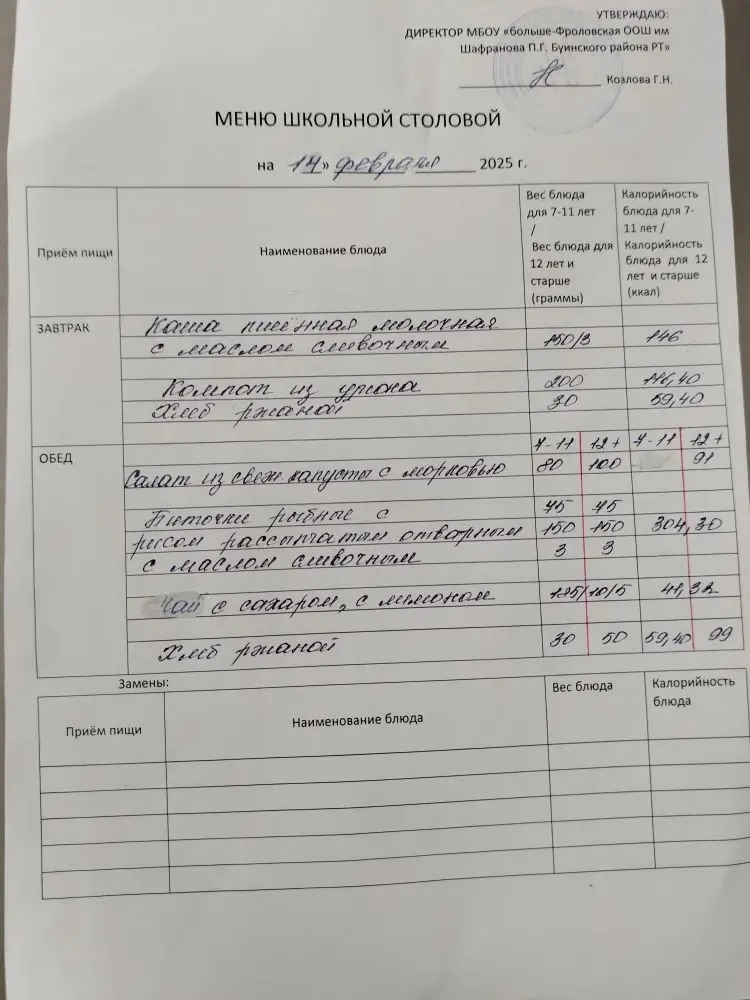 УТВЕРЖДАЮ:
ДИРЕКТОР МБОУ «больше-Фроловская ООШ им
Шафранова П.Г. Буинского района РТ»
Козлова Г.Н.
МЕНЮ ШКОЛЬНОЙ СТОЛОВОЙ
на 14» февраля 2025 г.
Приём пищи
Наименование блюда
Вес блюда
для 7-11 лет
/
Вес блюда для
12 лет и
старше
(граммы)
Калорийность
блюда для 7-
11 лет /
Калорийность
блюда для 12
лет и старше
(ккал)
ЗАВТРАК
Каша пшённая молочная
с маслом сливочным 150/3 146
Компот из урюка 200 116,40
Хлеб ржаной 30 59,40
ОБЕД
7-11 12+ 7-11 12+
Салат из свеж. капусты с морковью 80 100 91
Биточки рыбные с 75 75
рисом рассыпчатым отварным 150 150 304,30
с маслом сливочным 3 3
Чай с сахаром, с лимоном 185/10/5 41,32
Хлеб ржаной 30 50 59,40 99
Замены:
Приём пищи
Наименование блюда
Вес блюда
Калорийность
блюда